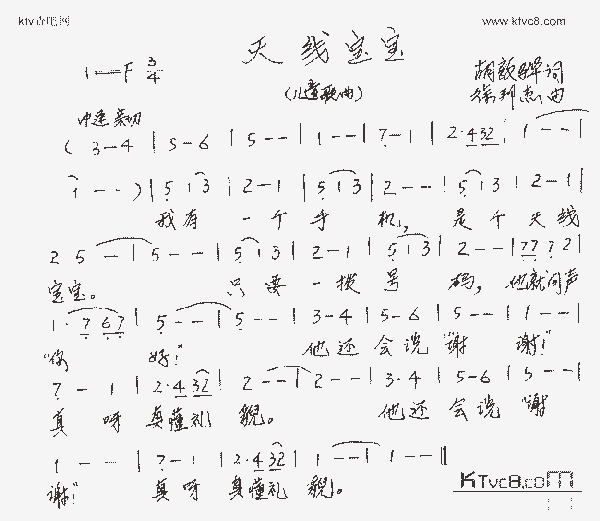 www.ktvc8.com
天线宝宝
(儿童歌曲)
1=F 3/4
词
曲
中速 亲切
( 3-4 | 5-6 | 5-- | 1-- | 7-1 | 2·432 | 1--
1--) | 513 | 2-1 | 513 | 2-- | 513 | 2-1 |
我有 一个手 机, 是个天线
25- | 5-- | 513 | 2-1 | 513 | 2-- | 7772 |
宝宝。 只要一拨号 码, 他就问声
1·767 | 5-- | 5-- | 3-4 | 5-6 | 5-- | 1-- |
“你 好!” 他还会说“谢 谢!”
7-1 | 2·432 | 2-- | 2-- | 3·4 | 5-6 | 5-- |
真呀真懂礼貌。 他还会说“谢
1-- | 7-1 | 2·432 | 1-- | 1-- ‖
谢!” 真呀真懂礼貌。
KTvc8.com